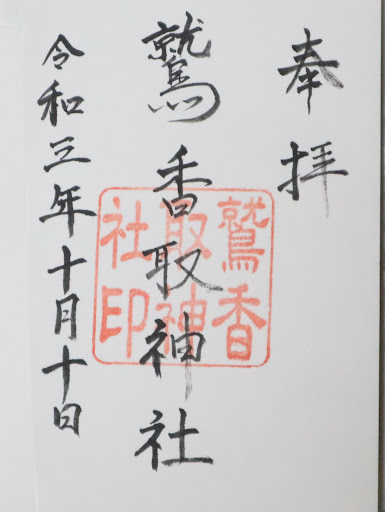 奉拝
鷲香取神社
鷲香
取神
社印
令和三年十月十日